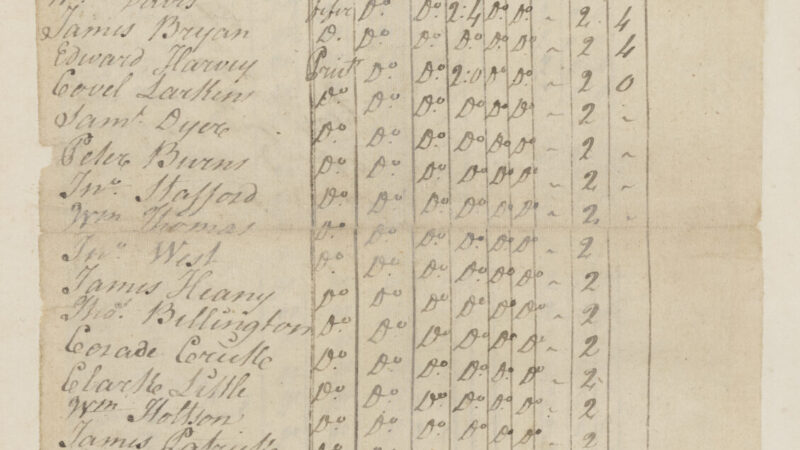 Davis fifer Do Do 2:4 Do Do ~ 2 4
James Bryan Do Do Do Do Do Do ~ 2 4
Edward Harvey Privt Do Do 2:0 Do Do ~ 2 0
Covel Larkins Do Do Do Do Do Do ~ 2 ~
Saml Dyer Do Do Do Do Do Do ~ 2 ~
Peter Burns Do Do Do Do Do Do ~ 2 ~
Jno Stafford Do Do Do Do Do Do ~ 2 ~
Wm Thomas Do Do Do Do Do Do ~ 2
Jno West Do Do Do Do Do Do ~ 2
James Heany Do Do Do Do Do Do ~ 2
Thos Billington Do Do Do Do Do Do ~ 2
Corade Do Do Do Do Do Do ~ 2
Clark Little Do Do Do Do Do Do ~ 2
Wm Holtson Do Do Do Do Do Do ~ 2
James Patrick